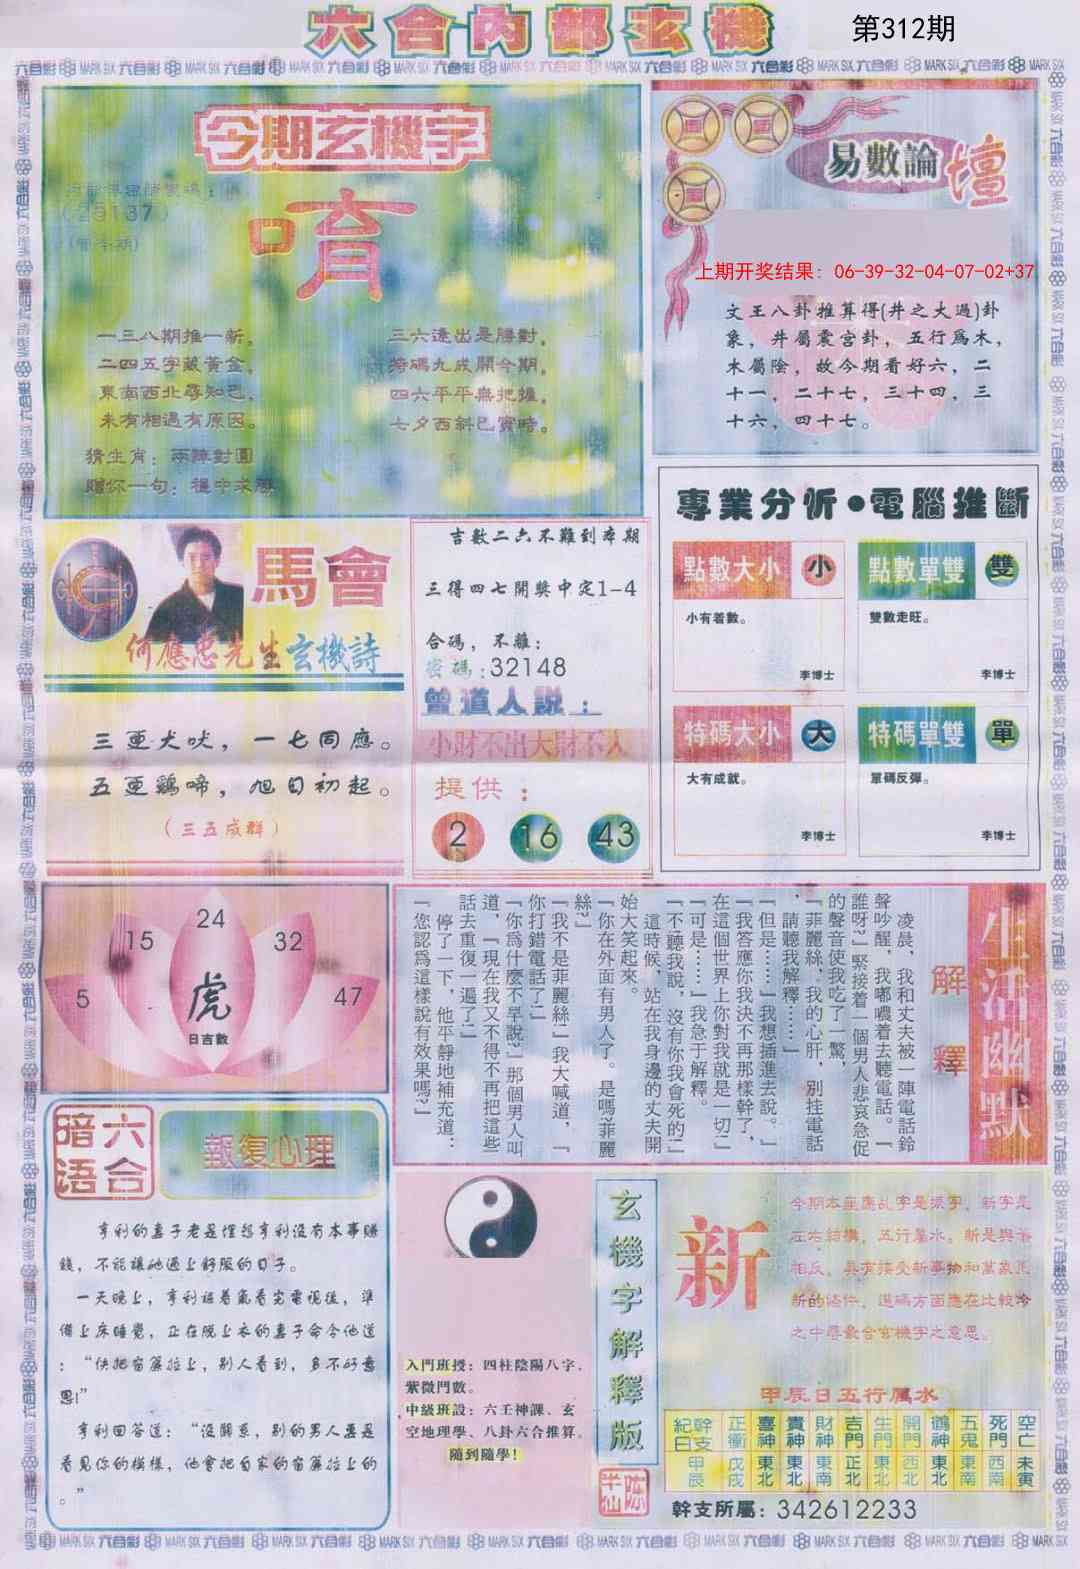 六合內部玄機
第312期
今期玄機字
(29137)
唷
一三八期推一新。
二四五字藏黃金。
東南西北尋知己。
未有相遇有原因。
三六遠出是勝對。
特碼九成開今期。
四六平平無把握。
七夕西斜已實時。
猜生肖：兩陣對圓
贈你一句：穩中求勝
易數論壇
上期开奖结果：06-39-32-04-07-02+37
文王八卦推算得(井之大過)卦
象，井屬震宮卦，五行爲木，
木屬陰，故今期看好六，二
十一，二十七，三十四，三
十六，四十七。
專業分析●電腦推斷
點數大小 小
小有着數。
李博士
點數單雙 雙
雙數走旺。
李博士
特碼大小 大
大有成就。
李博士
特碼單雙 單
單碼反彈。
李博士
馬會
何應忠先生玄機詩
三更犬吠，一七同應。
五更鷄啼，旭日初起。
(三五成群)
吉數二六不難到本期
三得四七開獎中定1-4
合碼，不離：
密碼:32148
曾道人説：
小財不出大財不入
提供：
2 16 43
5 15 24 32 47
虎
日吉數
生活幽默
解釋
凌晨，我和丈夫被一陣電話鈴
聲吵醒，我嘟噥着去聽電話。『
誰呀?』緊接着一個男人悲哀急促
的聲音使我吃了一驚，
『菲麗絲，我的心肝，别挂電話
，請聽我解釋……』
『但是……』我想插進去説。』
『我答應你我決不再那樣幹了，
在這個世界上你對我就是一切』
『可是……』我急于解釋。
『不聽我説，没有你我會死的!』
這時候，站在我身邊的丈夫開
始大笑起來。
『你在外面有男人了。是嗎?菲麗
絲?』
『我不是菲麗絲!』我大喊道，『
你打錯電話了!』
『你爲什麼不早説?』那個男人叫
道，『現在我又不得不再把這些
話去重復一遍了!』
停了一下，他平靜地補充道：
『您認爲這樣説有效果嗎?』
六合暗语
報復心理
亨利的妻子老是埋怨亨利没有本事賺
錢，不能讓她過上舒服的日子。
一天晚上，亨利裝着氣看完電視後，準
備上床睡覺，正在脱上衣的妻子命令他道
：“快把窗簾拉上，别人看到，多不好意
思!”
亨利回答道：“没關系，别的男人要是
看見你的模樣，他會把自家的窗簾拉上的
。”
入門班授：四柱陰陽八字、
紫微門數。
中級班設：六壬神課、玄
空地理學、八卦六合推算。
隨到隨學！
玄機字解釋版
新
今期本座應乩字是派字，新字是
左右結構，五行屬水。新是與舊
相反，具有接受新事物和萬象更
新的條件，選碼方面應在比較冷
之中尋最合玄機字之意思。
甲辰日五行屬水
幹支紀日 正衝 喜神 貴神 財神 吉門 生門 開門 鶴神 五鬼 死門 空亡
甲辰 戊戌 東北 東北 東南 正北 東北 西北 東北 東南 西南 未寅
幹支所屬：342612233